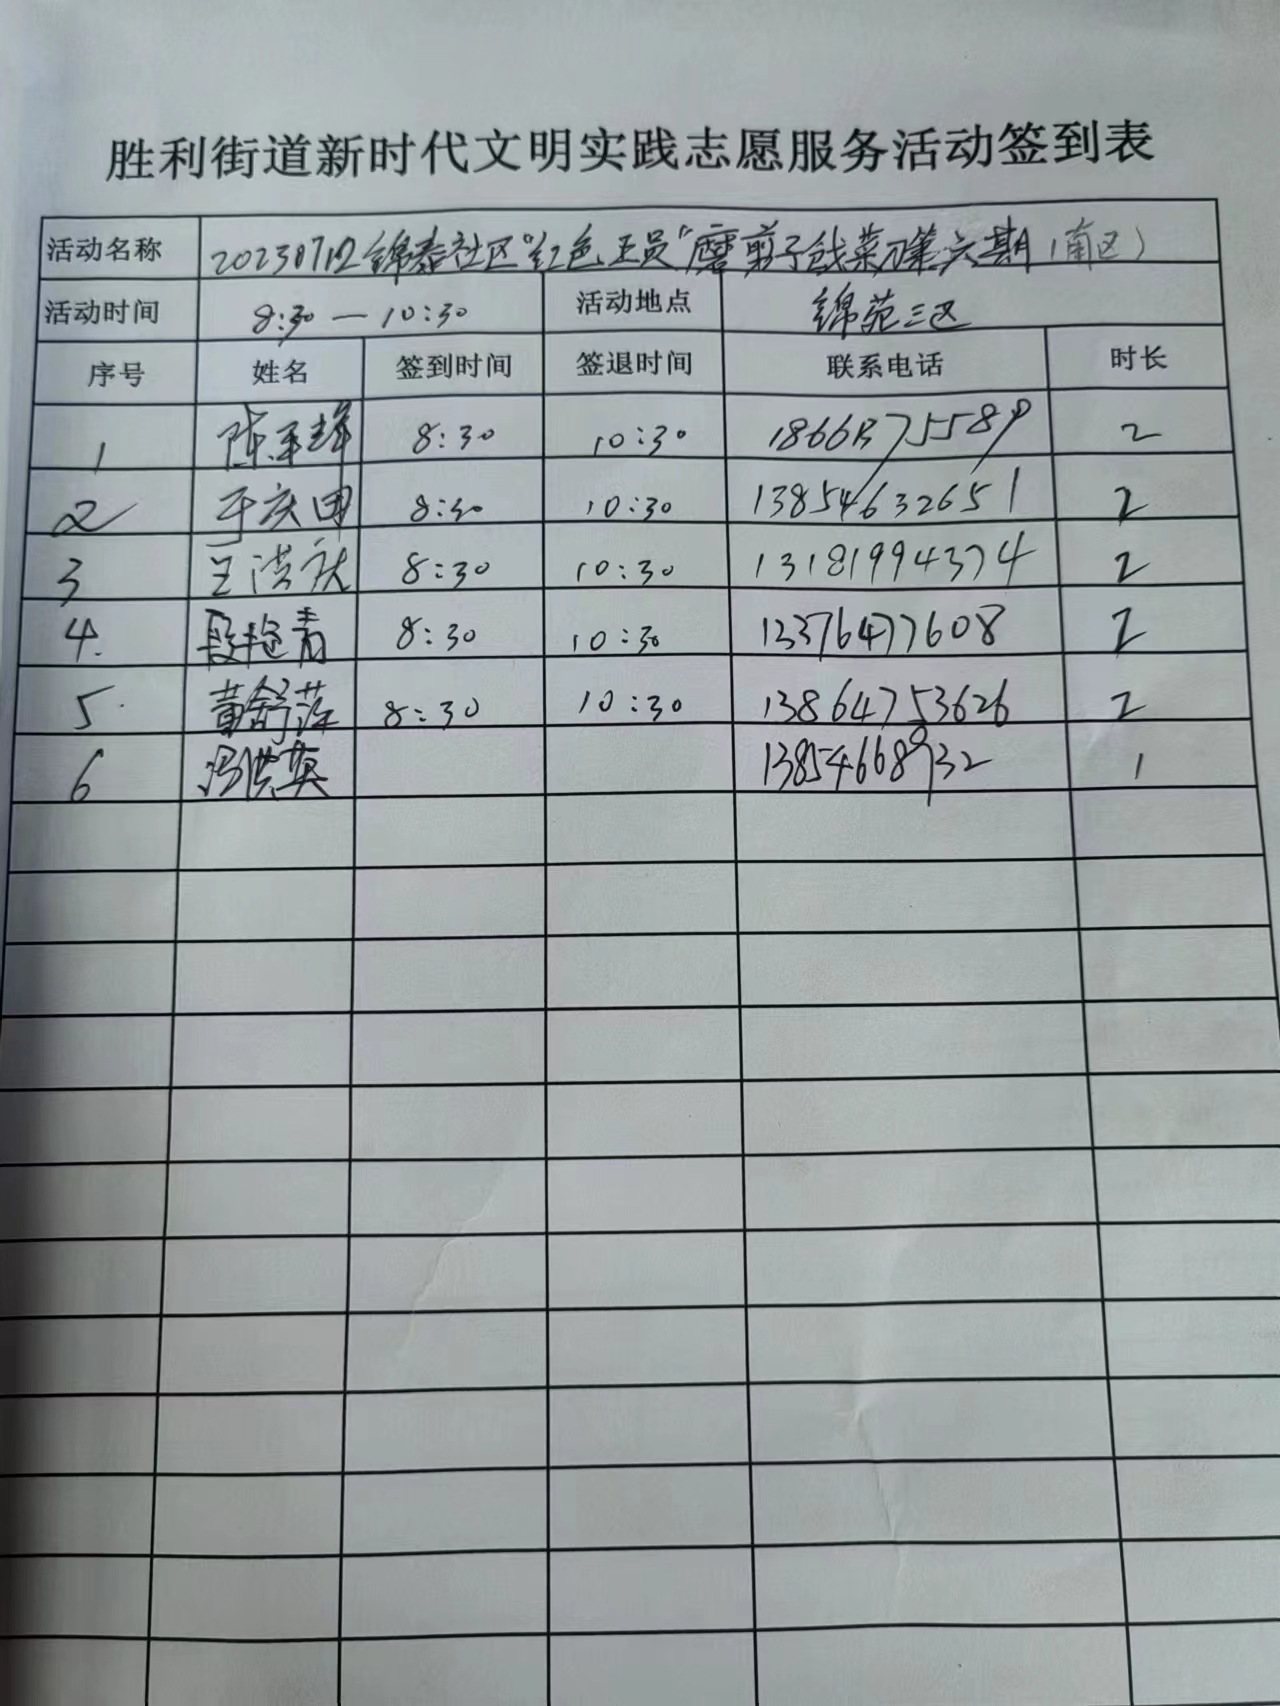 胜利街道新时代文明实践志愿服务活动签到表
活动名称 20230712锦泰社区"红色王员"磨剪子戗菜刀第六期(南区)
活动时间 8:30—10:30 活动地点 锦苑三区
序号 姓名 签到时间 签退时间 联系电话 时长
1 8:30 10:30 2
2 于庆田 8:30 10:30 13854632651 2
3 王洪欣 8:30 10:30 13181994374 2
4. 段艳青 8:30 10:30 13376477608 2
5 黄舒萍 8:30 10:30 13864753626 2
6 冯洪英 13854668932 1